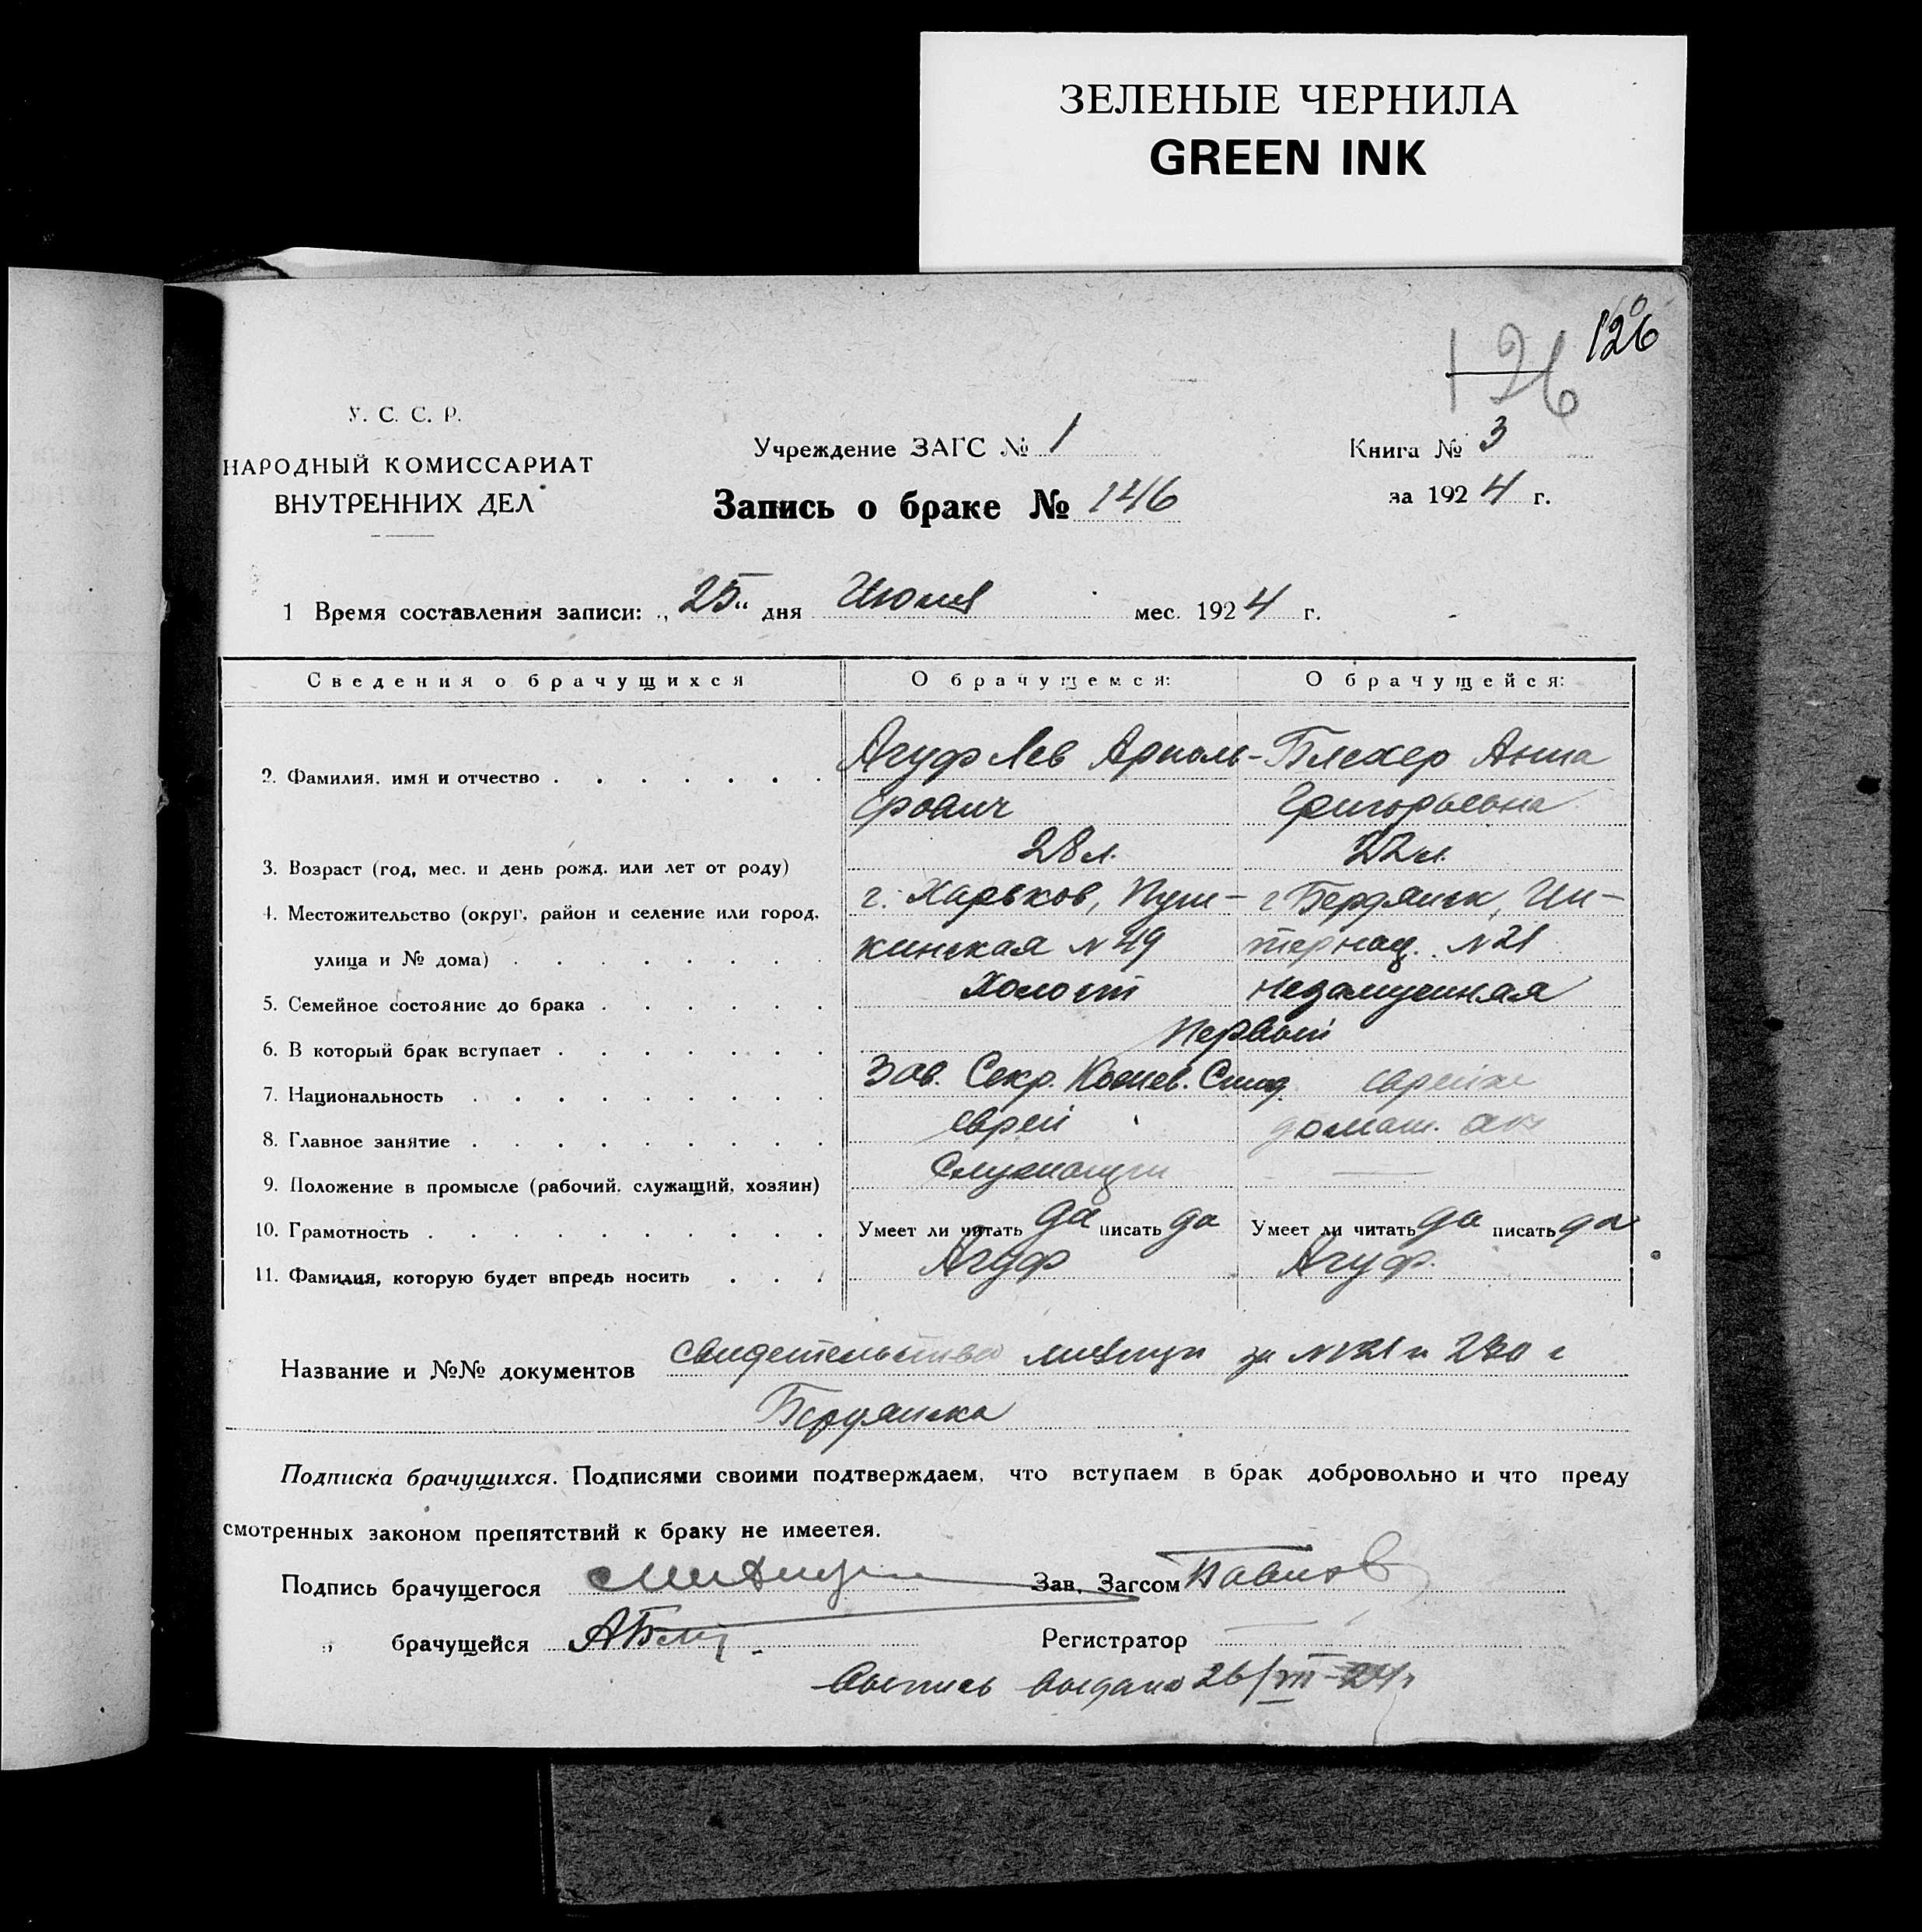 ЗЕЛЕНЫЕ ЧЕРНИЛА
GREEN INK
126
126
У. С. С. Р.
НАРОДНЫЙ КОМИССАРИАТ
ВНУТРЕННИХ ДЕЛ
Учреждение ЗАГС № 1
Книга № 3
Запись о браке № 146
за 1924 г.
1 Время составления записи: „25" дня Июля мес. 1924 г.
Сведения о брачущихся О брачущемся: О брачущейся:
2. Фамилия, имя и отчество Агуф Лев Арноль- Блехер Анна
дович Григорьевна
3. Возраст (год, мес. и день рожд. или лет от роду) 28 л. 22 л.
4. Местожительство (округ, район и селение или город, г. Харьков, Пуш- г Бердянск, Ин-
улица и № дома) кинская №49 тернац. №21
5. Семейное состояние до брака Холост незамужняя
6. В который брак вступает Первый
7. Национальность Зав. Секр. еврейка
8. Главное занятие еврей домаш.
9. Положение в промысле (рабочий, служащий, хозяин) Служащий —
10. Грамотность Умеет ли читать да писать да Умеет ли читать да писать да
11. Фамилия, которую будет впредь носить Агуф Агуф.
Название и №№ документов свидетельства милиции за №
Бердянска
Подписка брачущихся. Подписями своими подтверждаем, что вступаем в брак добровольно и что преду
смотренных законом препятствий к браку не имеетея.
Подпись брачущегося Зав. Загсом
„ брачущейся Регистратор
Выпись выдана 26/VII-24г